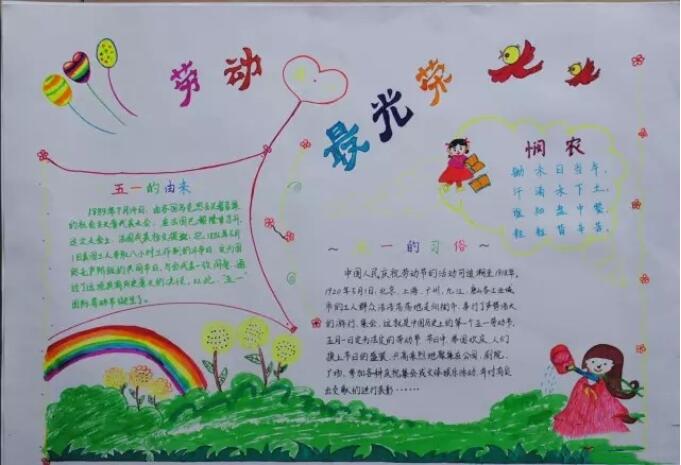 劳动
最光荣
五一的由来
1889年7月14日,由各国马克思主义者召集
的社会主义者代表大会,在法国巴黎隆重召开。
这次大会上,法国代表拉文提议:把1886年5月
1日美国工人争取八小时工作制的斗争日,定为国
际无产阶级的共同节日。与会代表一致同意,通
过了这项具有历史意义的决议。从此,"五一"
国际劳动节诞生了。
悯农
锄禾日当午,
汗滴禾下土。
谁知盘中餐,
粒粒皆辛苦。
~五一的习俗~
中国人民庆祝劳动节的活动可追溯至1918年。
1920年5月1日,北京、上海、广州、九江、唐山各工业城
市的工人群众浩浩荡荡地走向街市、举行了声势浩大
的游行、集会。这就是中国历史上的第一个五一劳动节。
五月一日定为法定的劳动节 节日中,举国欢庆,人们
换上节日的盛装,兴高采烈地聚集在公园、剧院、
广场,参加各种庆祝集会或文体娱乐活动,并对有突
出贡献的进行表彰······